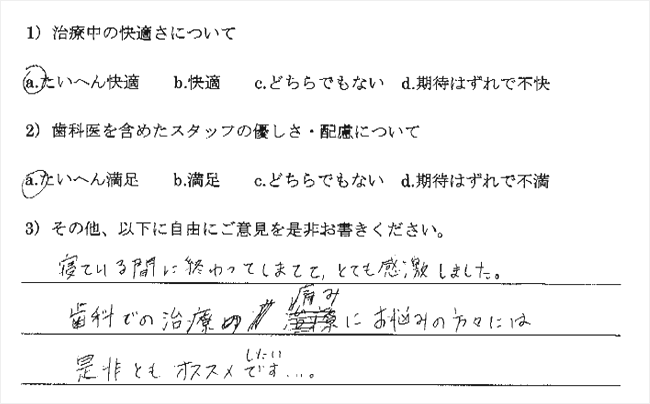 1）治療中の快適さについて
a.たいへん快適 b.快適 c.どちらでもない d.期待はずれで不快
2）歯科医を含めたスタッフの優しさ・配慮について
a.たいへん満足 b.満足 c.どちらでもない d.期待はずれで不満
3）その他、以下に自由にご意見を是非お書きください。
寝ている間に終わってしまてて、とても感激しました。
歯科での治療 痛み にお悩みの方々には
是非ともオススメしたいです…。